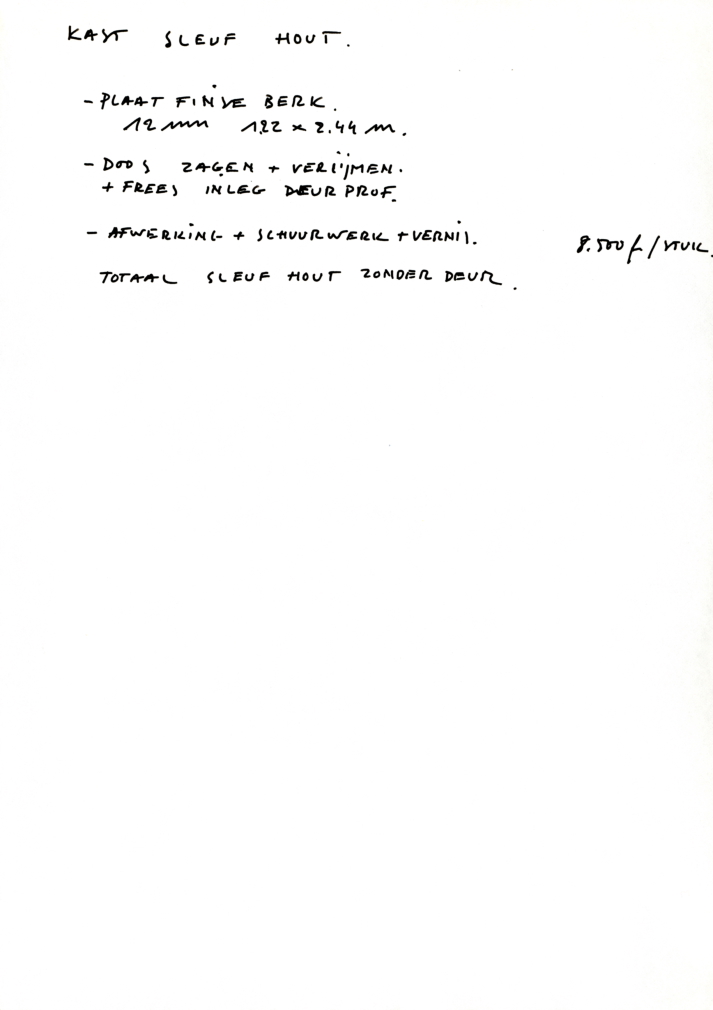 KAST SLEUF HOUT.
- PLAAT FINSE BERK.
12 mm 122 x 2.44 m.
- DOOS ZAGEN + VERLIJMEN.
+ FREES INLEG DEUR PROF.
- AFWERKING + SCHUURWERK + VERNIS. 8.500 f / STUK.
TOTAAL SLEUF HOUT ZONDER DEUR.